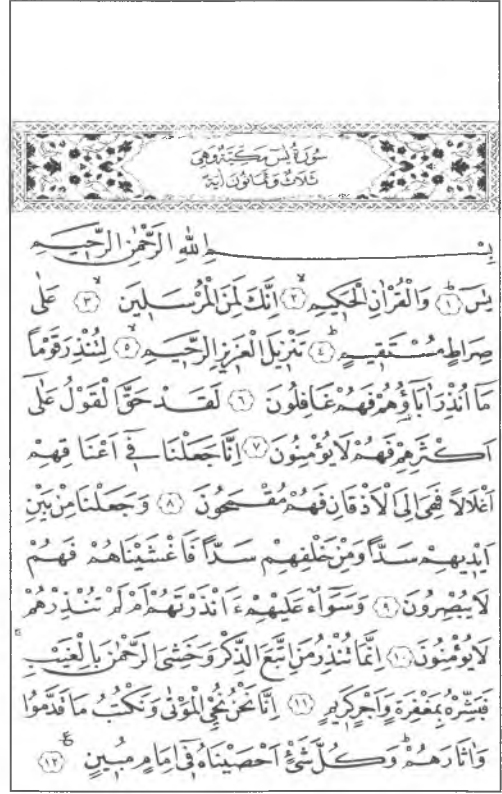 سُورَةُ يٰسٓ مَكِّيَّةٌ وَهِىَ
ثَلَاثٌ وَثَمَانُونَ اٰيَةً
بِسْمِ اللّٰهِ الرَّحْمٰنِ الرَّحِيمِ
يٰسٓ ﴿١﴾ وَالْقُرْاٰنِ الْحَكِيمِ ﴿٢﴾ اِنَّكَ لَمِنَ الْمُرْسَلِينَ ﴿٣﴾ عَلٰى
صِرَاطٍ مُسْتَقِيمٍ ﴿٤﴾ تَنْزِيلَ الْعَزِيزِ الرَّحِيمِ ﴿٥﴾ لِتُنْذِرَ قَوْمًا
مَا اُنْذِرَ اٰبَاؤُهُمْ فَهُمْ غَافِلُونَ ﴿٦﴾ لَقَدْ حَقَّ الْقَوْلُ عَلٰٓى
اَكْثَرِهِمْ فَهُمْ لَا يُؤْمِنُونَ ﴿٧﴾ اِنَّا جَعَلْنَا فِٓى اَعْنَاقِهِمْ
اَغْلَالًا فَهِىَ اِلَى الْاَذْقَانِ فَهُمْ مُقْمَحُونَ ﴿٨﴾ وَجَعَلْنَا مِنْ بَيْنِ
اَيْدِيهِمْ سَدًّا وَمِنْ خَلْفِهِمْ سَدًّا فَاَغْشَيْنَاهُمْ فَهُمْ
لَا يُبْصِرُونَ ﴿٩﴾ وَسَوَٓاءٌ عَلَيْهِمْ ءَاَنْذَرْتَهُمْ اَمْ لَمْ تُنْذِرْهُمْ
لَا يُؤْمِنُونَ ﴿١٠﴾ اِنَّمَا تُنْذِرُ مَنِ اتَّبَعَ الذِّكْرَ وَخَشِىَ الرَّحْمٰنَ بِالْغَيْبِ
فَبَشِّرْهُ بِمَغْفِرَةٍ وَاَجْرٍ كَرِيمٍ ﴿١١﴾ اِنَّا نَحْنُ نُحْىِ الْمَوْتٰى وَنَكْتُبُ مَا قَدَّمُوا
وَاٰثَارَهُمْ وَكُلَّ شَىْءٍ اَحْصَيْنَاهُ فِٓى اِمَامٍ مُبِينٍ ﴿١٢﴾ ع